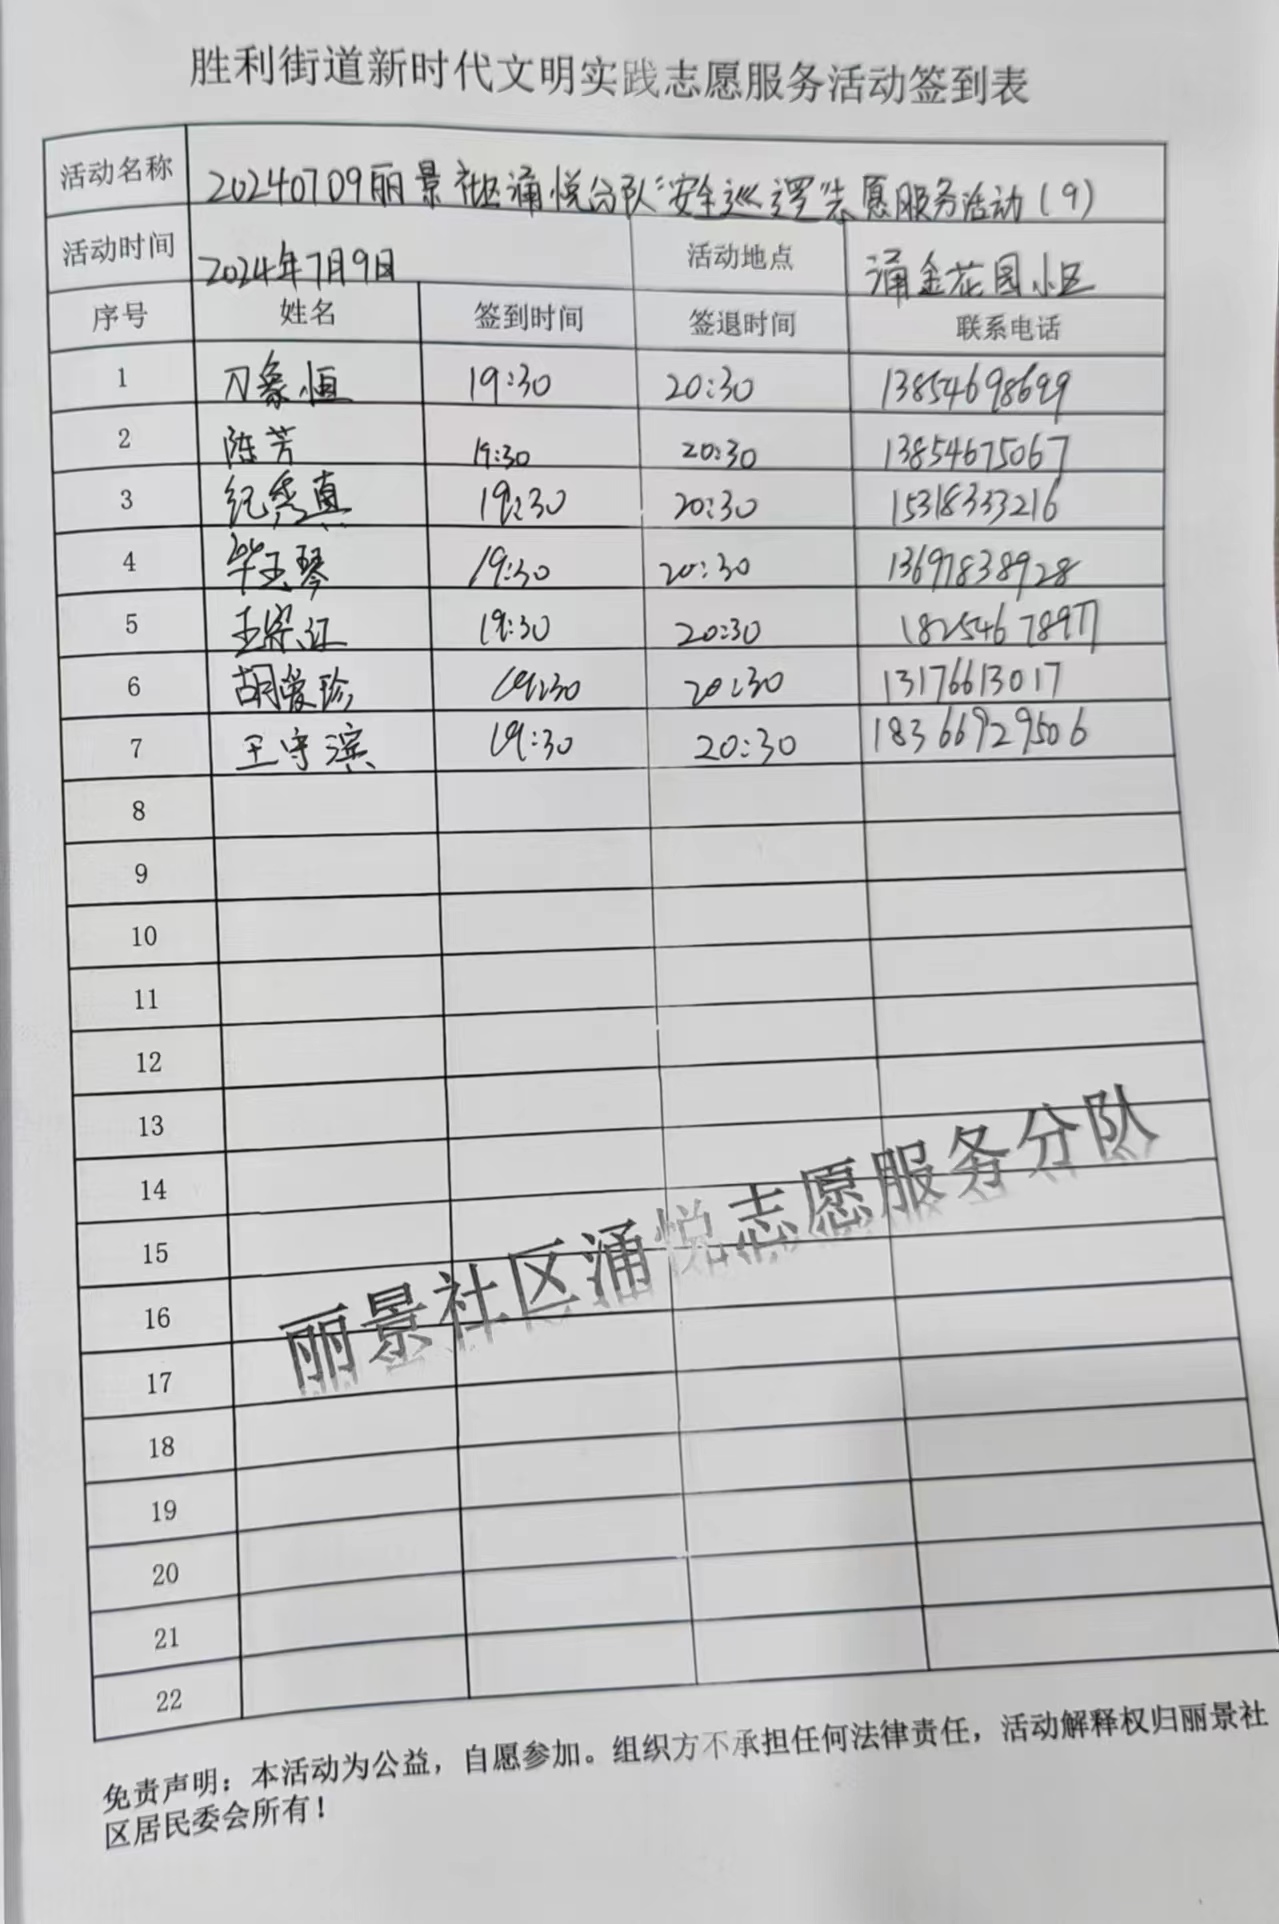 胜利街道新时代文明实践志愿服务活动签到表
活动名称 20240709丽景社区涌悦分队“安全巡逻”志愿服务活动(9)
活动时间 2024年7月9日 活动地点 涌金花园小区
序号 姓名 签到时间 签退时间 联系电话
1 刀象恒 19:30 20:30 13854698699
2 陈芳 19:30 20:30 13854675067
3 纪秀真 19:30 20:30 15318333216
4 毕玉琴 19:30 20:30 13697838928
5 19:30 20:30 18254678977
6 胡爱珍 19:30 20:30 13176613017
7 王守滨 19:30 20:30 18366929506
8
9
10
11
12
13
14
15
16
17
18
19
20
21
22
丽景社区涌悦志愿服务分队
免责声明：本活动为公益，自愿参加。组织方不承担任何法律责任，活动解释权归丽景社
区居民委会所有！